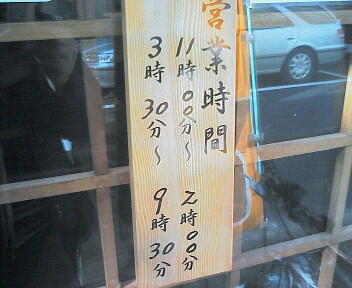 営業時間
11時00分～2時00分
3時30分～9時30分